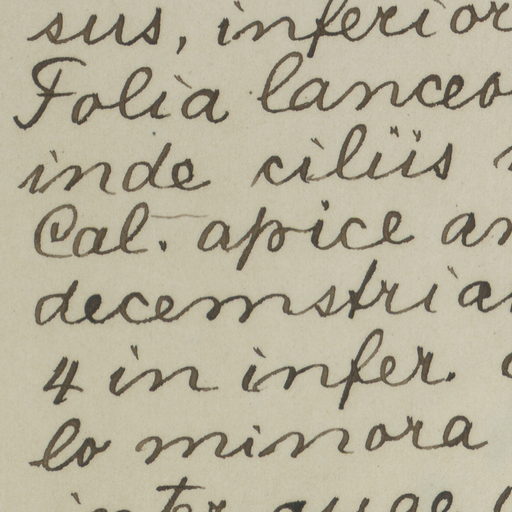 sus, inferior
Folia lanceo
inde ciliis
Cal. apice an
decemstria
4 in infer.
lo minora
inter quae